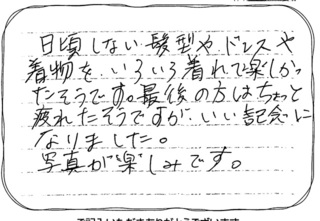 日頃しない髪型やドレスや
着物を いろいろ着れて楽しかっ
たそうです。最後の方はちょっと
疲れたそうですが いい記念に
なりました。
写真が楽しみです。